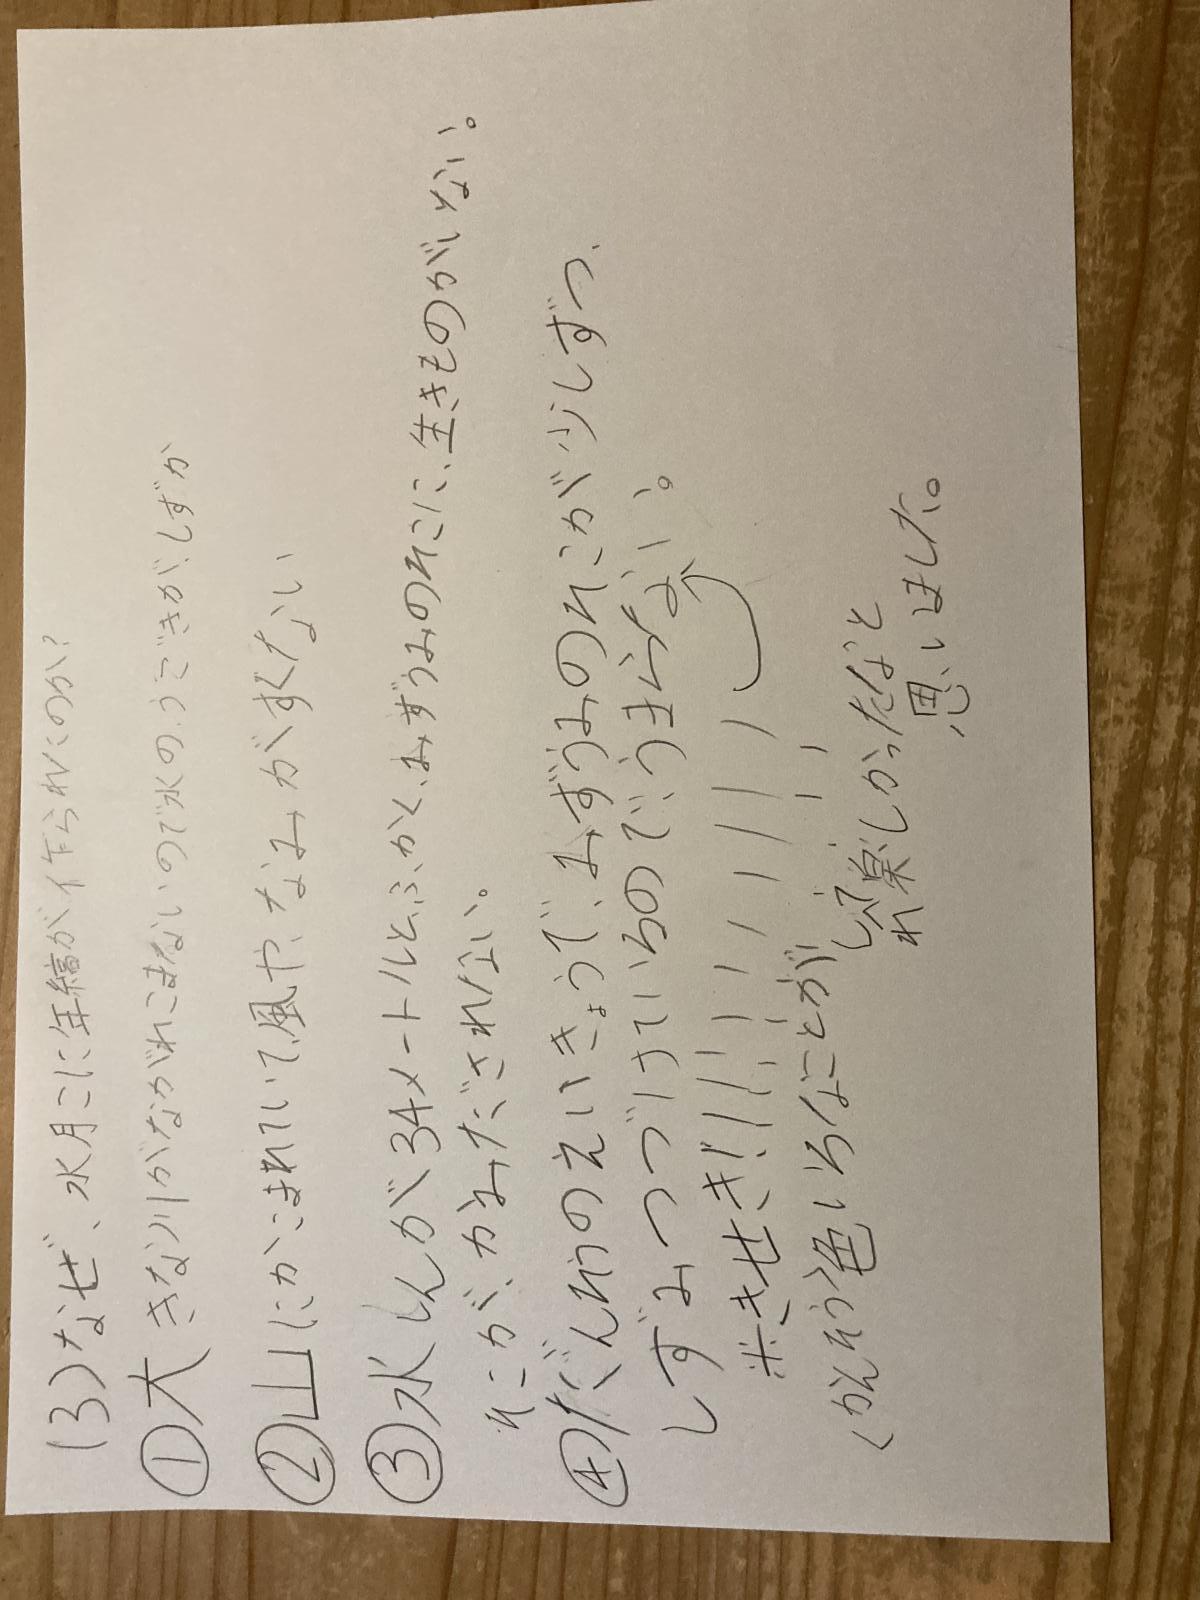 (3)なぜ、水月こに年縞が作られたのか?
①大きな川がながれこまないので水のうごきがしずか
②山にかこまれていて、風や、なみがすくない
③水しんが34メートルとふかく、みずうみのそこに、生きものがいない。
そこが、かみだされない。
④だんそうのえいきょうで、みずうみのそこが少しずつ、
しずみつづけているので、うまらない。
※きせき!!!!!!!!!
<かんそう>色いろなことが
しれて
楽しかったなと
思いました。